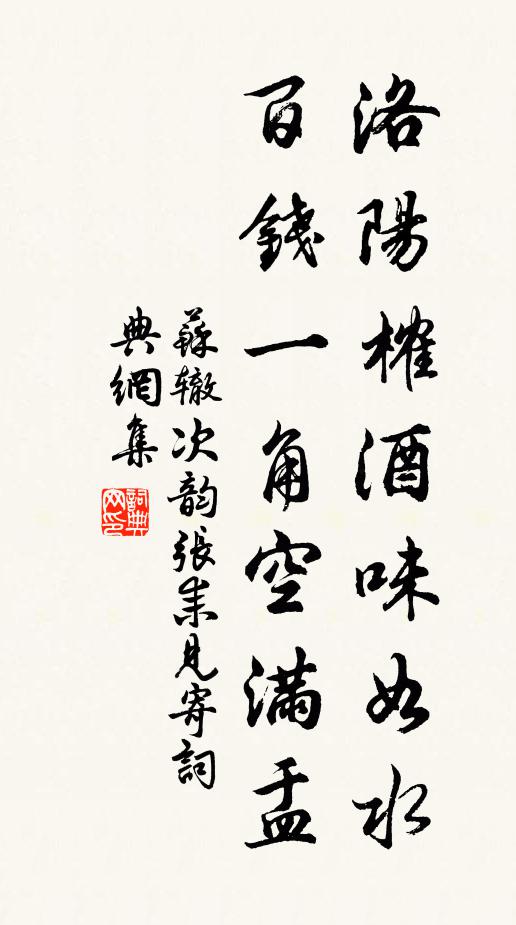 洛陽榷酒味如水
百錢一角空滿盂
蘇轍次韵張耒見寄詞
典網集
詞典网印